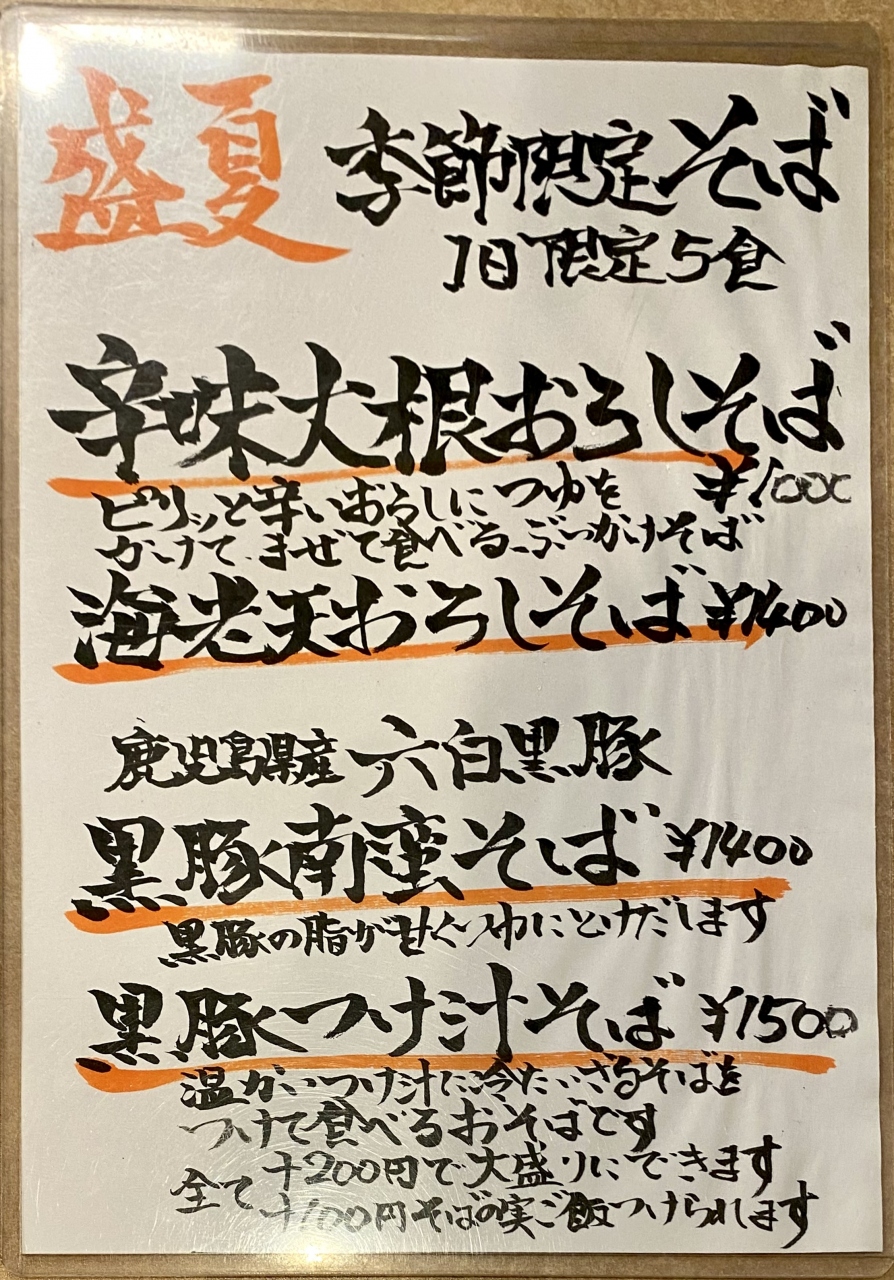 盛夏 季節限定そば
1日限定5食
辛味大根おろしそば
¥1000
ピリッと辛いおろしにつゆを
かけて、まぜて食べる、ぶっかけそば
海老天おろしそば ¥1400
鹿児島県産 六白黒豚
黒豚南蛮そば ¥1400
黒豚の脂が甘くつゆにとけだします
黒豚つけ汁そば ¥1500
温かいつけ汁に冷たいざるそばを
つけて食べるおそばです
全て +200円で大盛りにできます
+100円そばの実ご飯つけられます